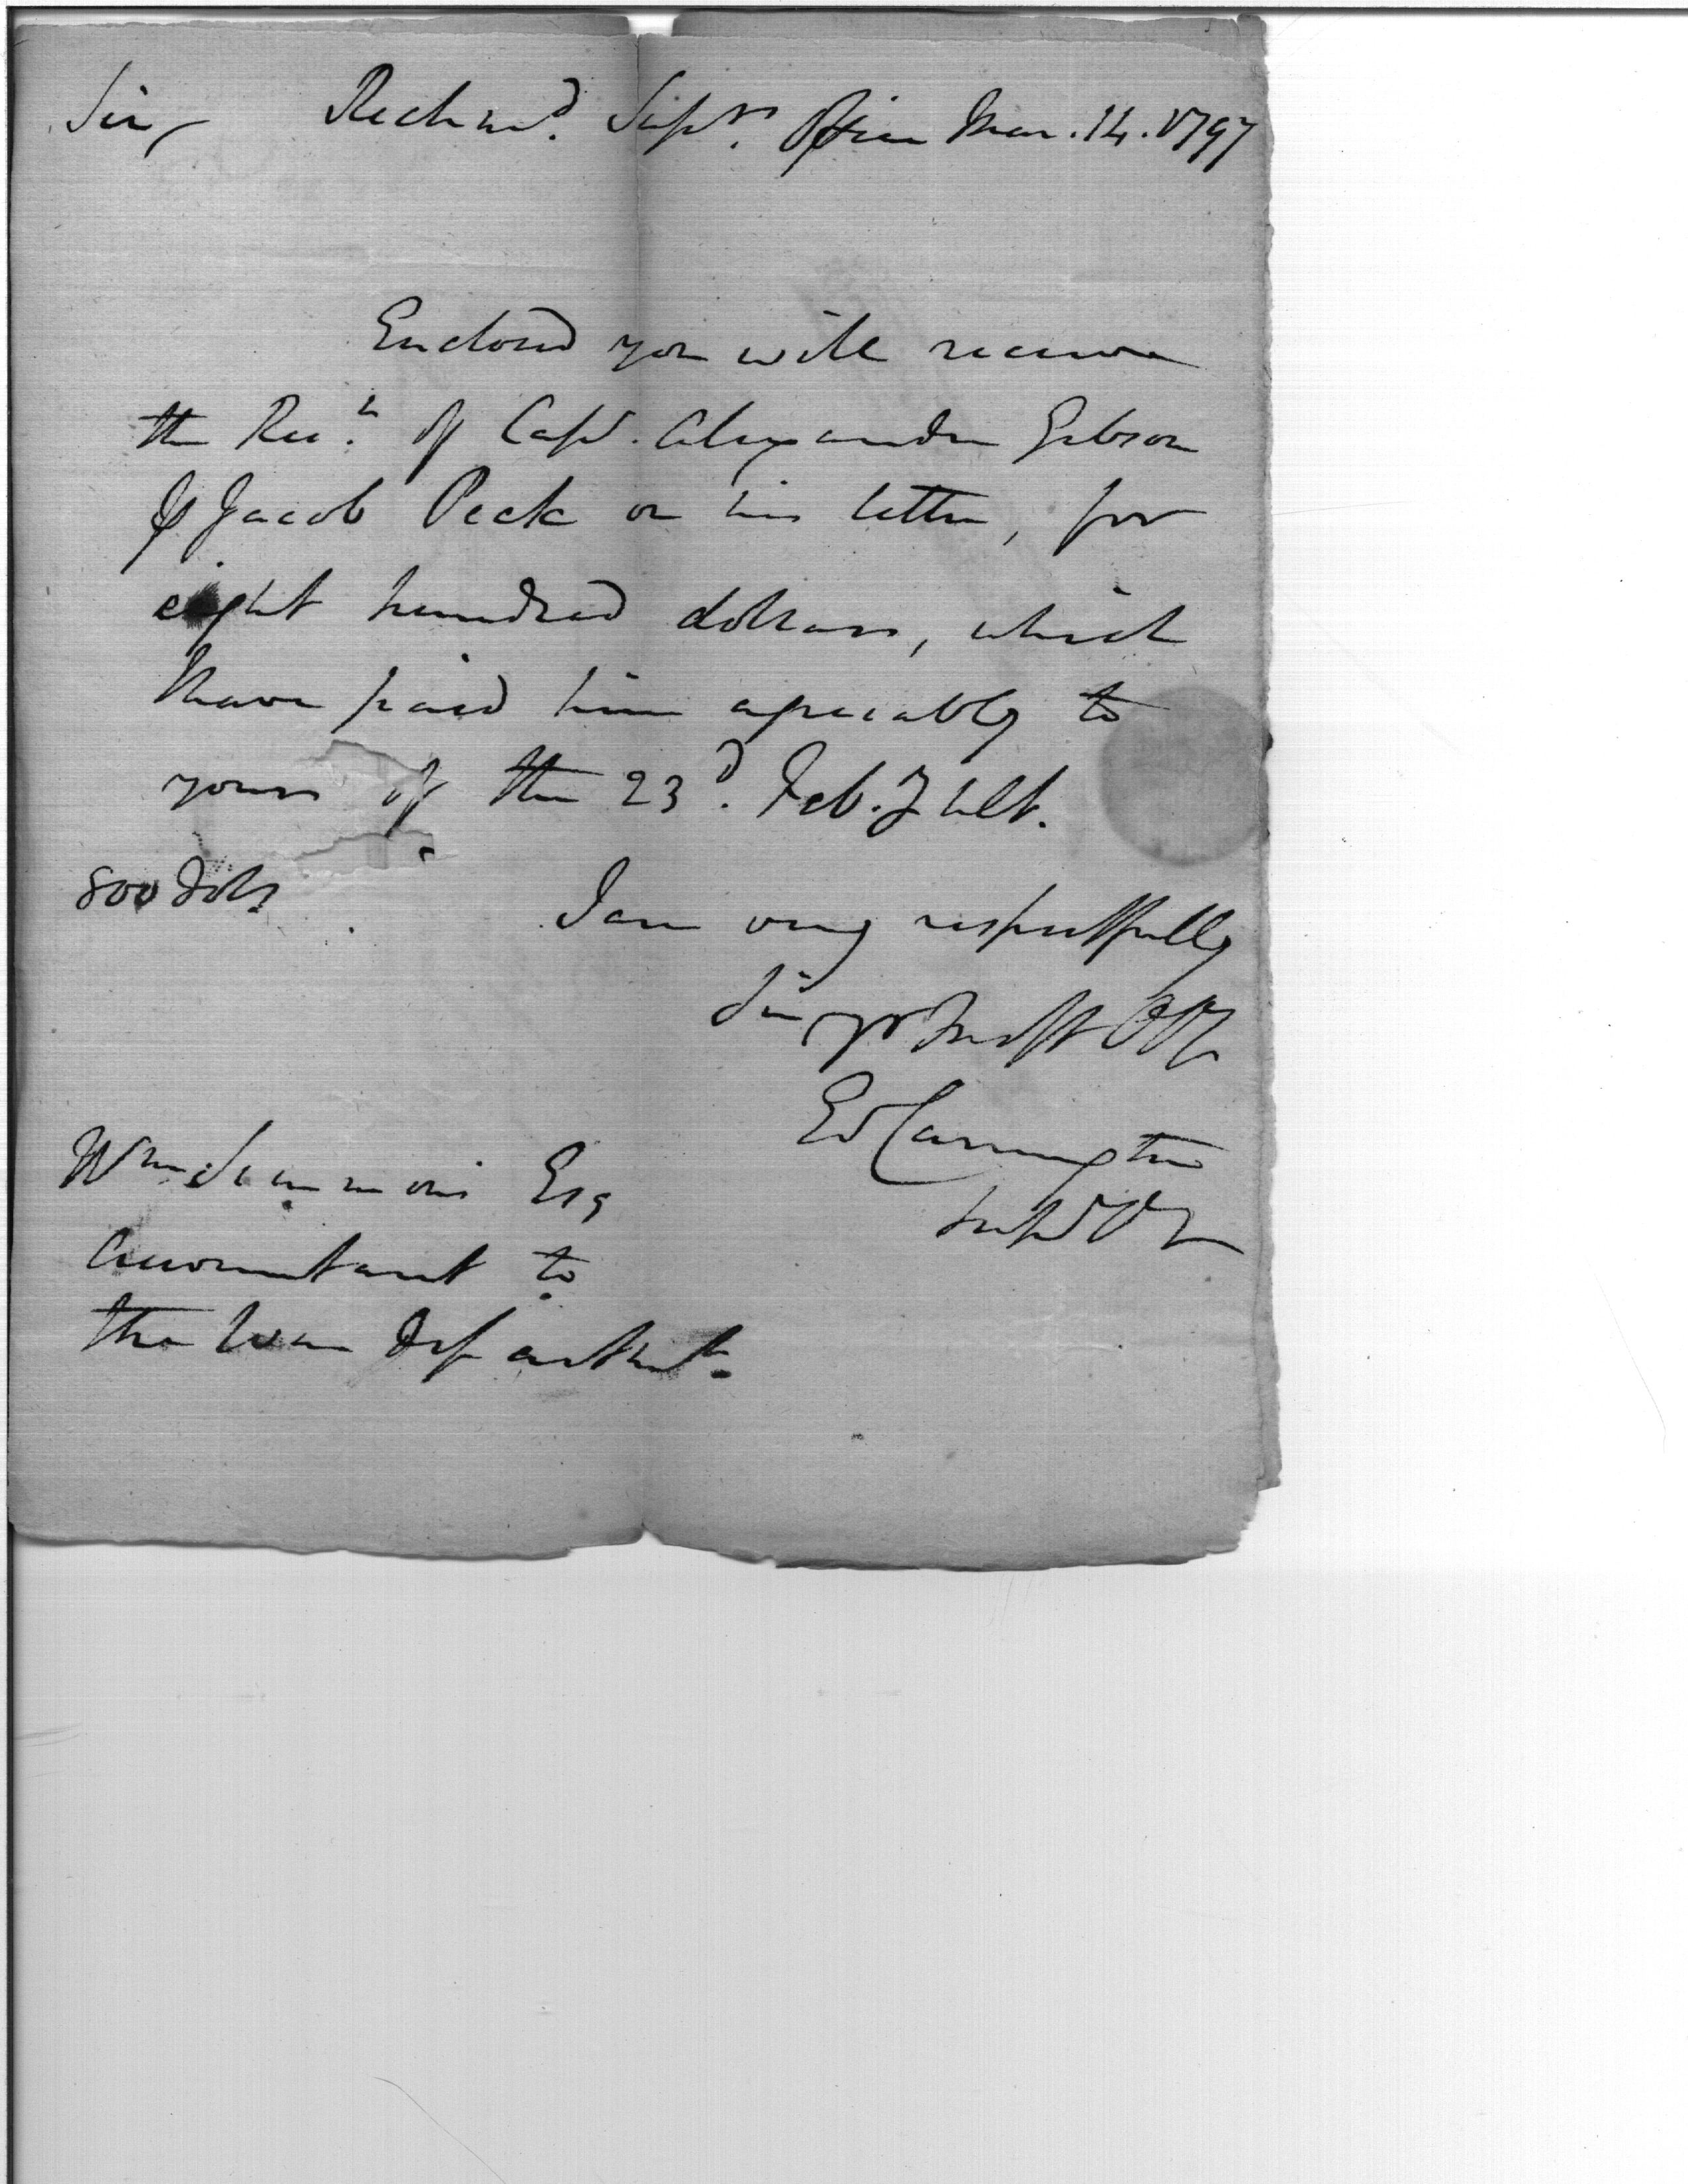 Sir, Richmd. Supvrs. Office Mar. 14. 1797
Enclosed you will receive
the Rect. of Capt. Alexander Gibson
Jacob Peck on his letter, for
eight hundred dollars, which
I have paid him agreeably to
yours of the 23d. Feb. Ult.
800 Dols.
I am very respectfully
Sir, yr
Ed Carrington
Wm Simmons Esq
Accountant to
the War Departmt.